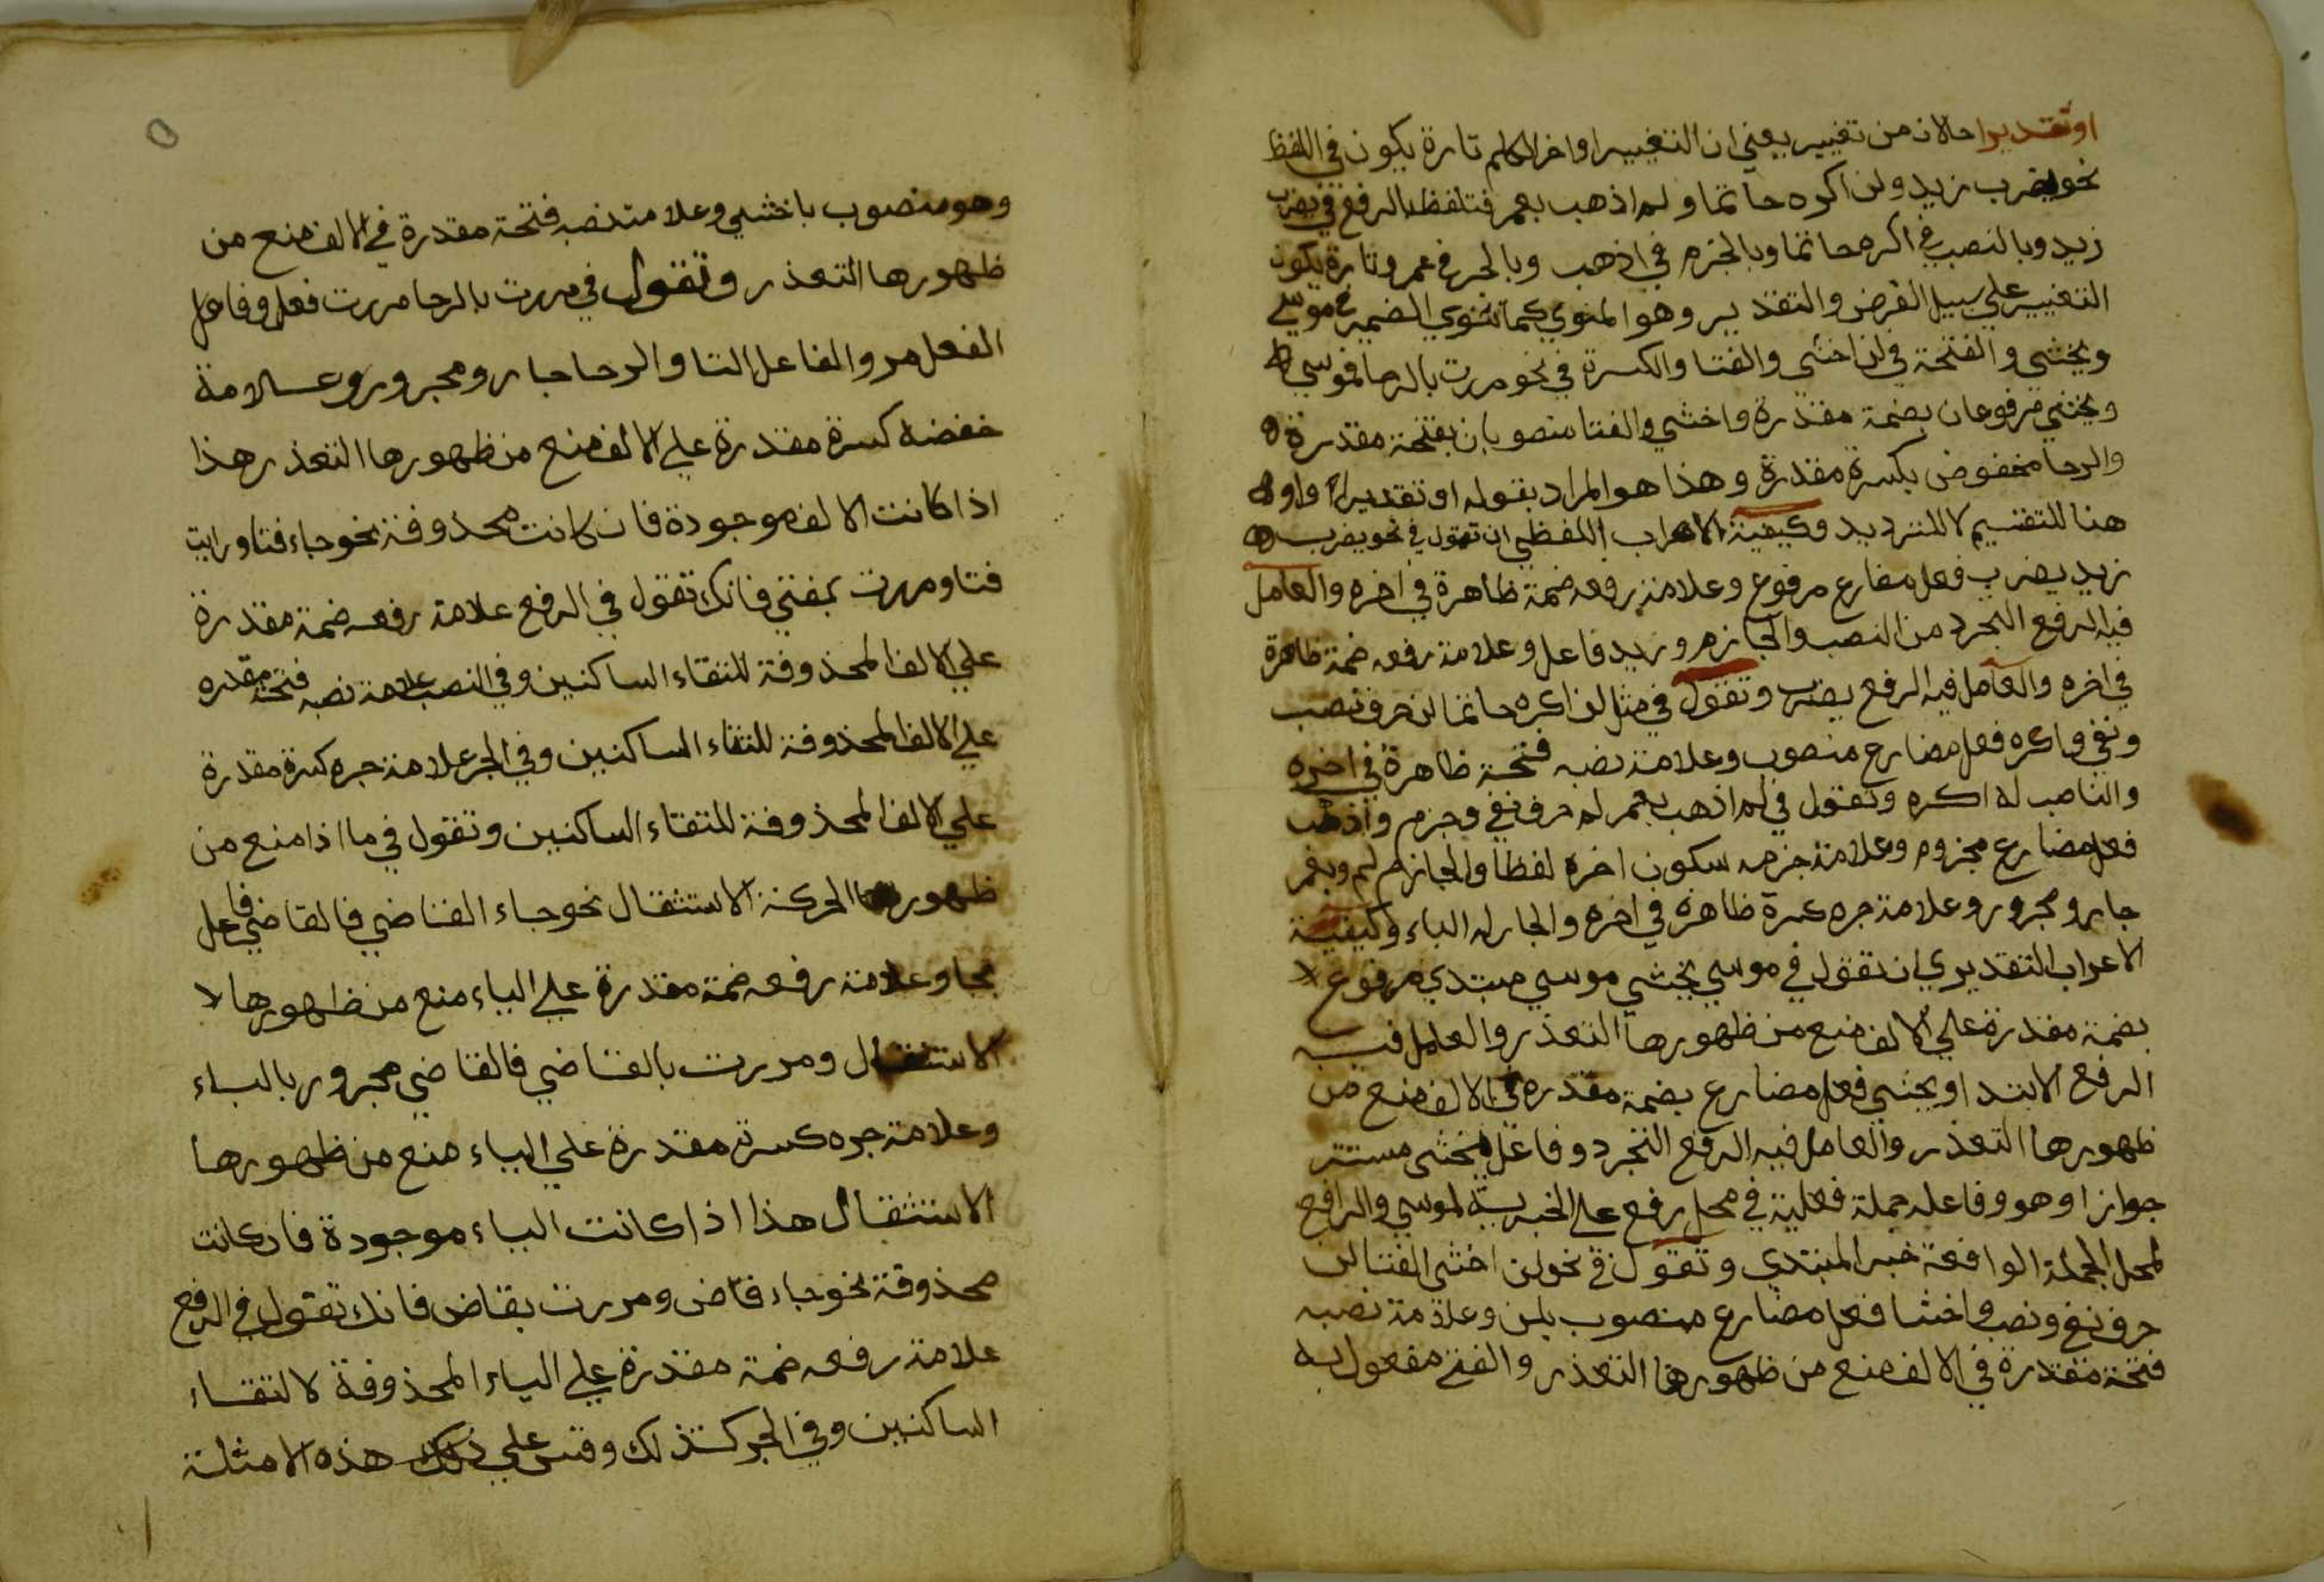 او تقديرا حالان من تغيير يعني ان التغيير اواخر الكلم تارة يكون في اللفظ
نحو يضرب زيد ولن اكره حاتما ولم اذهب بعمر فتلفظ بالرفع في يضرب
زيد وبالنصب في اكره حاتما وبالجزم في اذهب وبالجر في عمر وتارة يكون
التغيير على سبيل الفرض والتقدير وهو المنوي كما تنوي الضمة في موسى
ويخشى والفتحة في لن اخشى والفتا والكسرة في نحو مررت بالرحا فموسى
ويخشى مرفوعان بضمة مقدرة واخشي والفتا منصوبان بفتحة مقدرة
والرحا مخفوض بكسرة مقدرة وهذا هو المراد بقوله او تقديرا واو
هنا للتقسيم لا للترديد وكيفية الاعراب اللفظي ان تقول في نحو يضرب
زيد يضرب فعل مضارع مرفوع وعلامة رفعه ضمة ظاهرة في اخره والعامل
فيه الرفع التجرد من النصب والجازم وزيد فاعل وعلامة رفعه ضمة ظاهرة
في اخره والعامل فيه الرفع يضرب وتقول في مثل لن اكره حاتما لن حرف نصب
ونفي واكره فعل مضارع منصوب وعلامة نصبه فتحة ظاهرة في اخره
والناصب له اكره وتقول في لم اذهب بعمر لم حرف نفي وجزم واذهب
فعل مضارع مجزوم وعلامة جزمه سكون اخره لفظا والجازم لم وبعمر
جار ومجرور وعلامة جره كسرة ظاهرة في اخره والجار له الباء وكيفية
الاعراب التقديري ان تقول في موسي يخشي موسي مبتدي مرفوع
بضمة مقدرة علي الالف منع من ظهورها التعذر والعامل فيه
الرفع الابتدا ويخشي فعل مضارع بضمة مقدره في الالف منع من
ظهورها التعذر والعامل فيه الرفع التجرد وفاعل يخشى مستتر
جوازا وهو وفاعله جملة فعلية في محل رفع على الخبرية لموسي والرافع
لمحل الجملة الواقعة خبر المبتدي وتقول في نحو لن اخشى الفتا لن
حرف نفي ونصب واخشا فعل مضارع منصوب بلن وعلامة نصبه
فتحة مقدرة في الالف منع من ظهورها التعذر والفتى مفعول به
وهو منصوب باخشي وعلامة نصبه فتحة مقدرة في الالف منع من
ظهورها التعذر وتقول في مررت بالرحا مررت فعل وفاعل
الفعل مر والفاعل التا والرحا جار ومجرور وعلامة
خفضه كسرة مقدرة علي الالف منع من ظهورها التعذر هذا
اذا كانت الالف موجودة فان كانت محذوفة نحو جاء فتا ورايت
فتا ومررت بفتي فانك تقول في الرفع علامة رفعه ضمة مقدرة
علي الالف المحذوفة للتقاء الساكنين وفي النصب علامة نصبه فتحة مقدره
علي الالف المحذوفة للتقاء الساكنين وفي الجر علامة جره كسرة مقدرة
علي الالف المحذوفة للتقاء الساكنين وتقول في ما اذا منع من
ظهور الحركة الاستثقال نحو جاء القاضي فالقاضي فاعل
بجا وعلامة رفعه ضمة مقدرة علي الياء منع من ظهورها
الاستثقال ومررت بالقاضي فالقاضي مجرور بالباء
وعلامة جره كسرة مقدرة علي الياء منع من ظهورها
الاستثقال هذا اذا كانت الياء موجودة فان كانت
محذوفة نحو جاء قاض ومررت بقاض فانك تقول في الرفع
علامة رفعه ضمة مقدرة علي الياء المحذوفة لالتقاء
الساكنين وفي الجر كذلك وقس علي ذلك هذه الامثلة